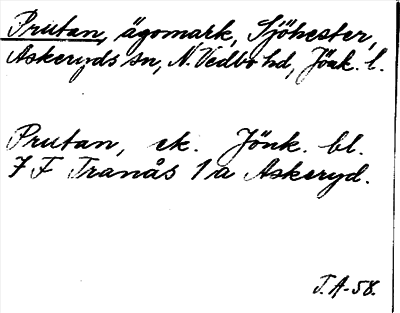 Prutan, ägomark, Sjöhester,
Askeryds sn, N. Vedbo hd, Jönk. l.
Prutan, ek. Jönk. bl.
7 F Tranås 1 a Askeryd.
T.A-58.